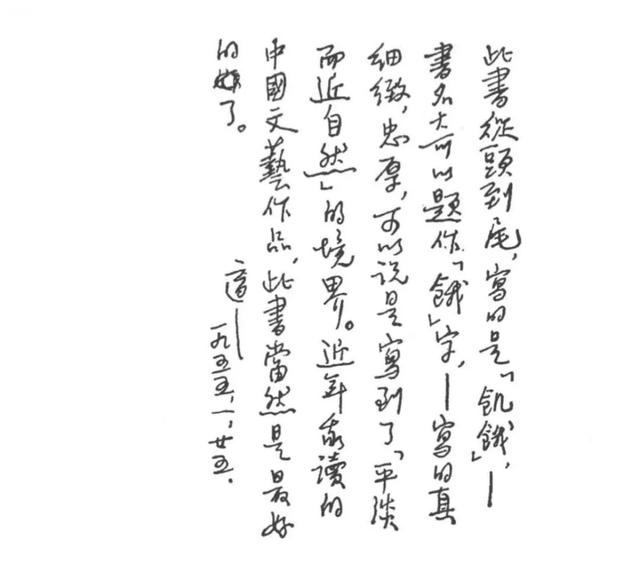 此書從頭到尾,寫的是「飢餓」,—
書名大可以題作「餓」字,—寫的真
細緻,忠厚,可以說是寫到了「平淡
而近自然」的境界。近年我讀的
中國文藝作品,此書當然是最好
的了。
適—一九五五、一、廿五.